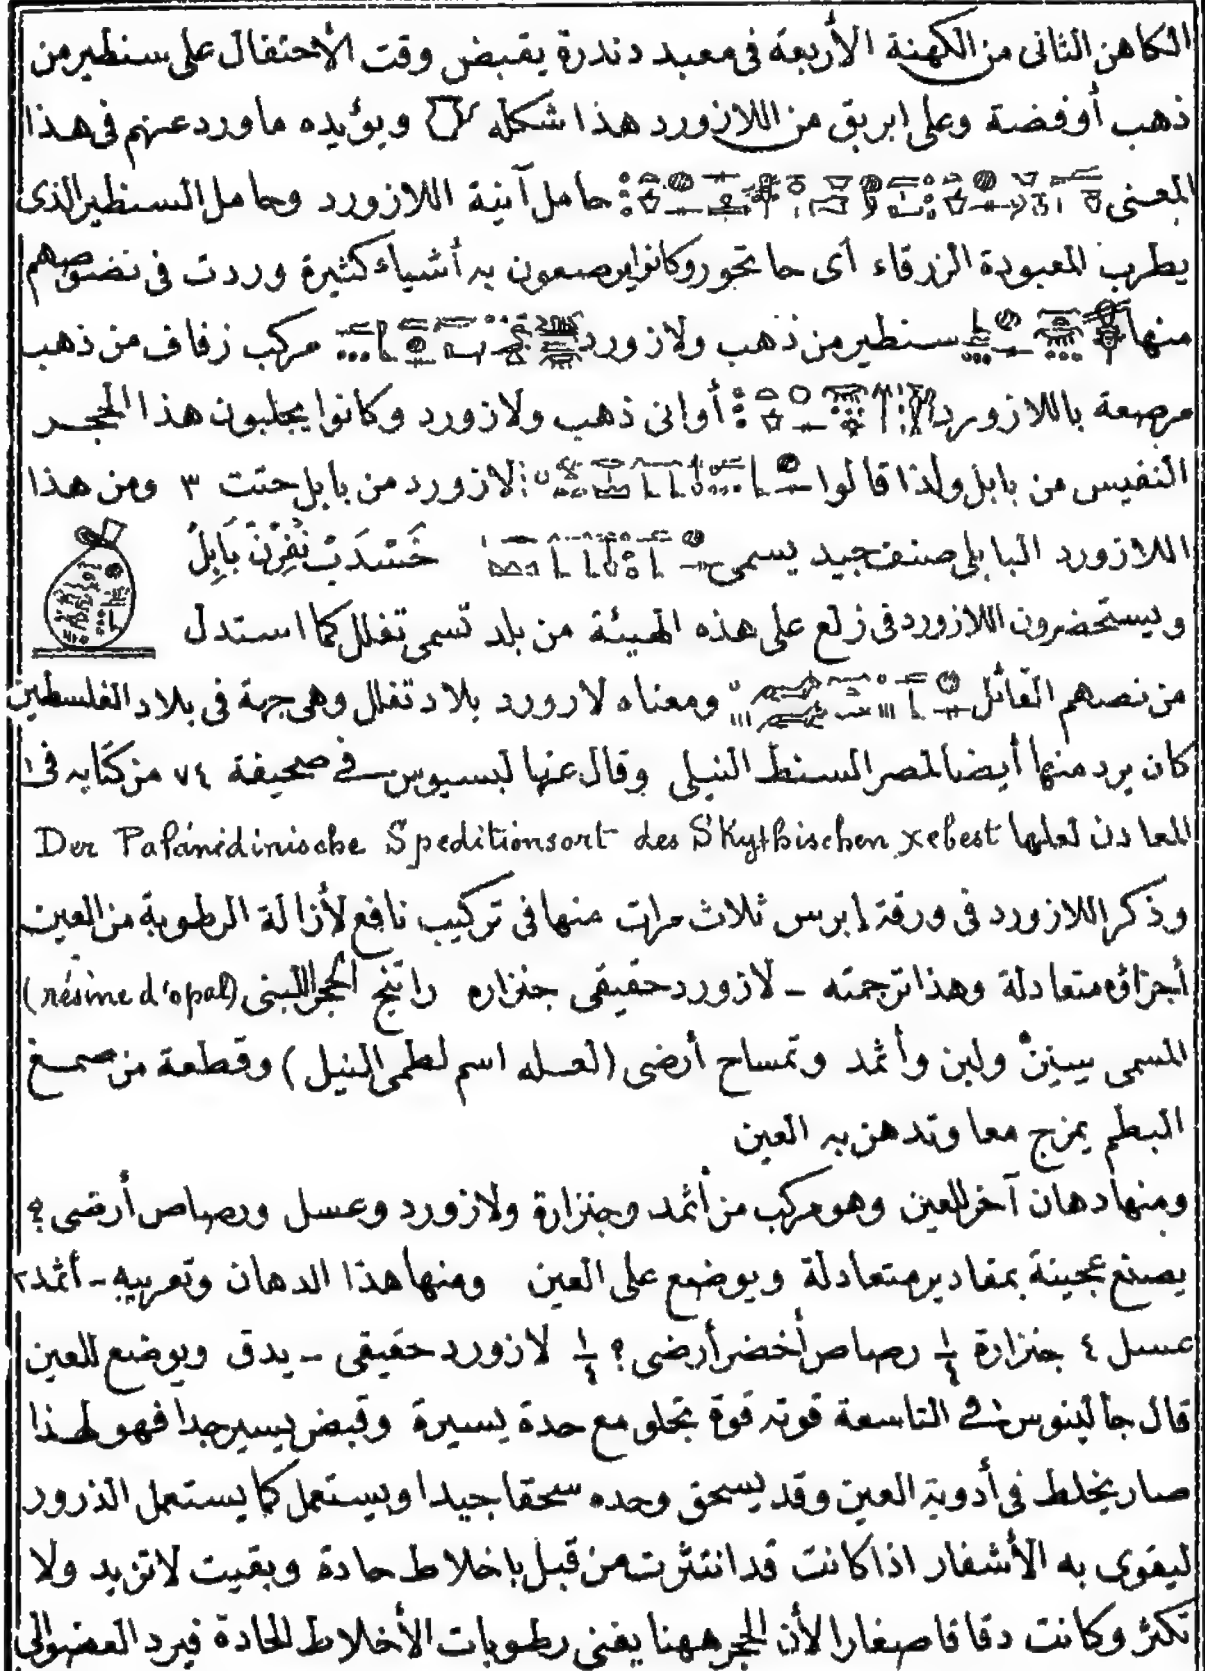 الكاهن الثانى من الكهنة الأربعة فى معبد دندرة يقبض وقت الأحتفال على سنطير من
ذهب أو فضة وعلى ابريق من اللازورد هذا شكله ويؤيده ماورد عنهم فى هذا
المعنى حامل آنية اللازورد وحامل السنطير الذى
يطرب المعبودة الزرقاء أى حاتحور وكانوا يرصعون به أشياء كثيرة وردت فى نصوصهم
منها سنطير من ذهب ولازورد مركب زفاف من ذهب
مرصعة باللازورد أوانى ذهب ولازورد وكانوا يجلبون هذا الحجر
النفيس من بابل ولذا قالوا لازورد من بابل حتت ٣ ومن هذا
اللازورد البابلى صنف جيد يسمى خَسْدَبْ نْفِرْنْ بَابِلُ
ويستحضرون اللازورد فى زلع على هذه الهيئة من بلد تسمى تفلل كما استدل
من نصهم القائل ومعناه لازورد بلاد تفلل وهى جهة فى بلاد الفلسطين
كان يرد منها أيضا لمصر السنط النيلى وقال عنها لبسيوس فى صحيفة ٧٤ من كتابه فى
المعادن لعلها Der Palänidinische Speditionsort des Skythischen xebest
وذكر اللازورد فى ورقة إبرس ثلاث مرات منها فى تركيب نافع لأزالة الرطوبة من العين
أجزاؤه متعادلة وهذا ترجمته - لازورد حقيقى جنزاره راتنج الحجر اللبنى (résine d'opal)
المسمى سِنِنْ ولبن وأثمد وتمساح أرضى (لعله اسم لطمى النيل) وقطعة من صمغ
البطم يمزج معا وتدهن به العين
ومنها دهان آخر للعين وهو مركب من أثمد وجنزارة ولازورد وعسل ورصاص أرضى ؟
يصنع عجينة بمقادير متعادلة ويوضع على العين ومنها هذا الدهان وتعريبه - أثمد ٢
عسل ٤ جنزارة ١/٤ رصاص أخضر أرضى ؟ ١/٤ لازورد حقيقى - يدق ويوضع للعين
قال جالينوس فى التاسعة قوته قوة تجلو مع حدة يسيرة وقبض يسير جدا فهو لهذا
صار يخلط فى أدوية العين وقد يسحق وحده سحقا جيدا ويستعمل كما يستعمل الذرور
ليقوى به الأشفار اذا كانت قد انتثرت من قبل باخلاط حادة وبقيت لا تزيد ولا
تكثر وكانت دقاقا صغارا لأن الحجر ههنا يفنى رطوبات الأخلاط الحادة فيرد العضو الى